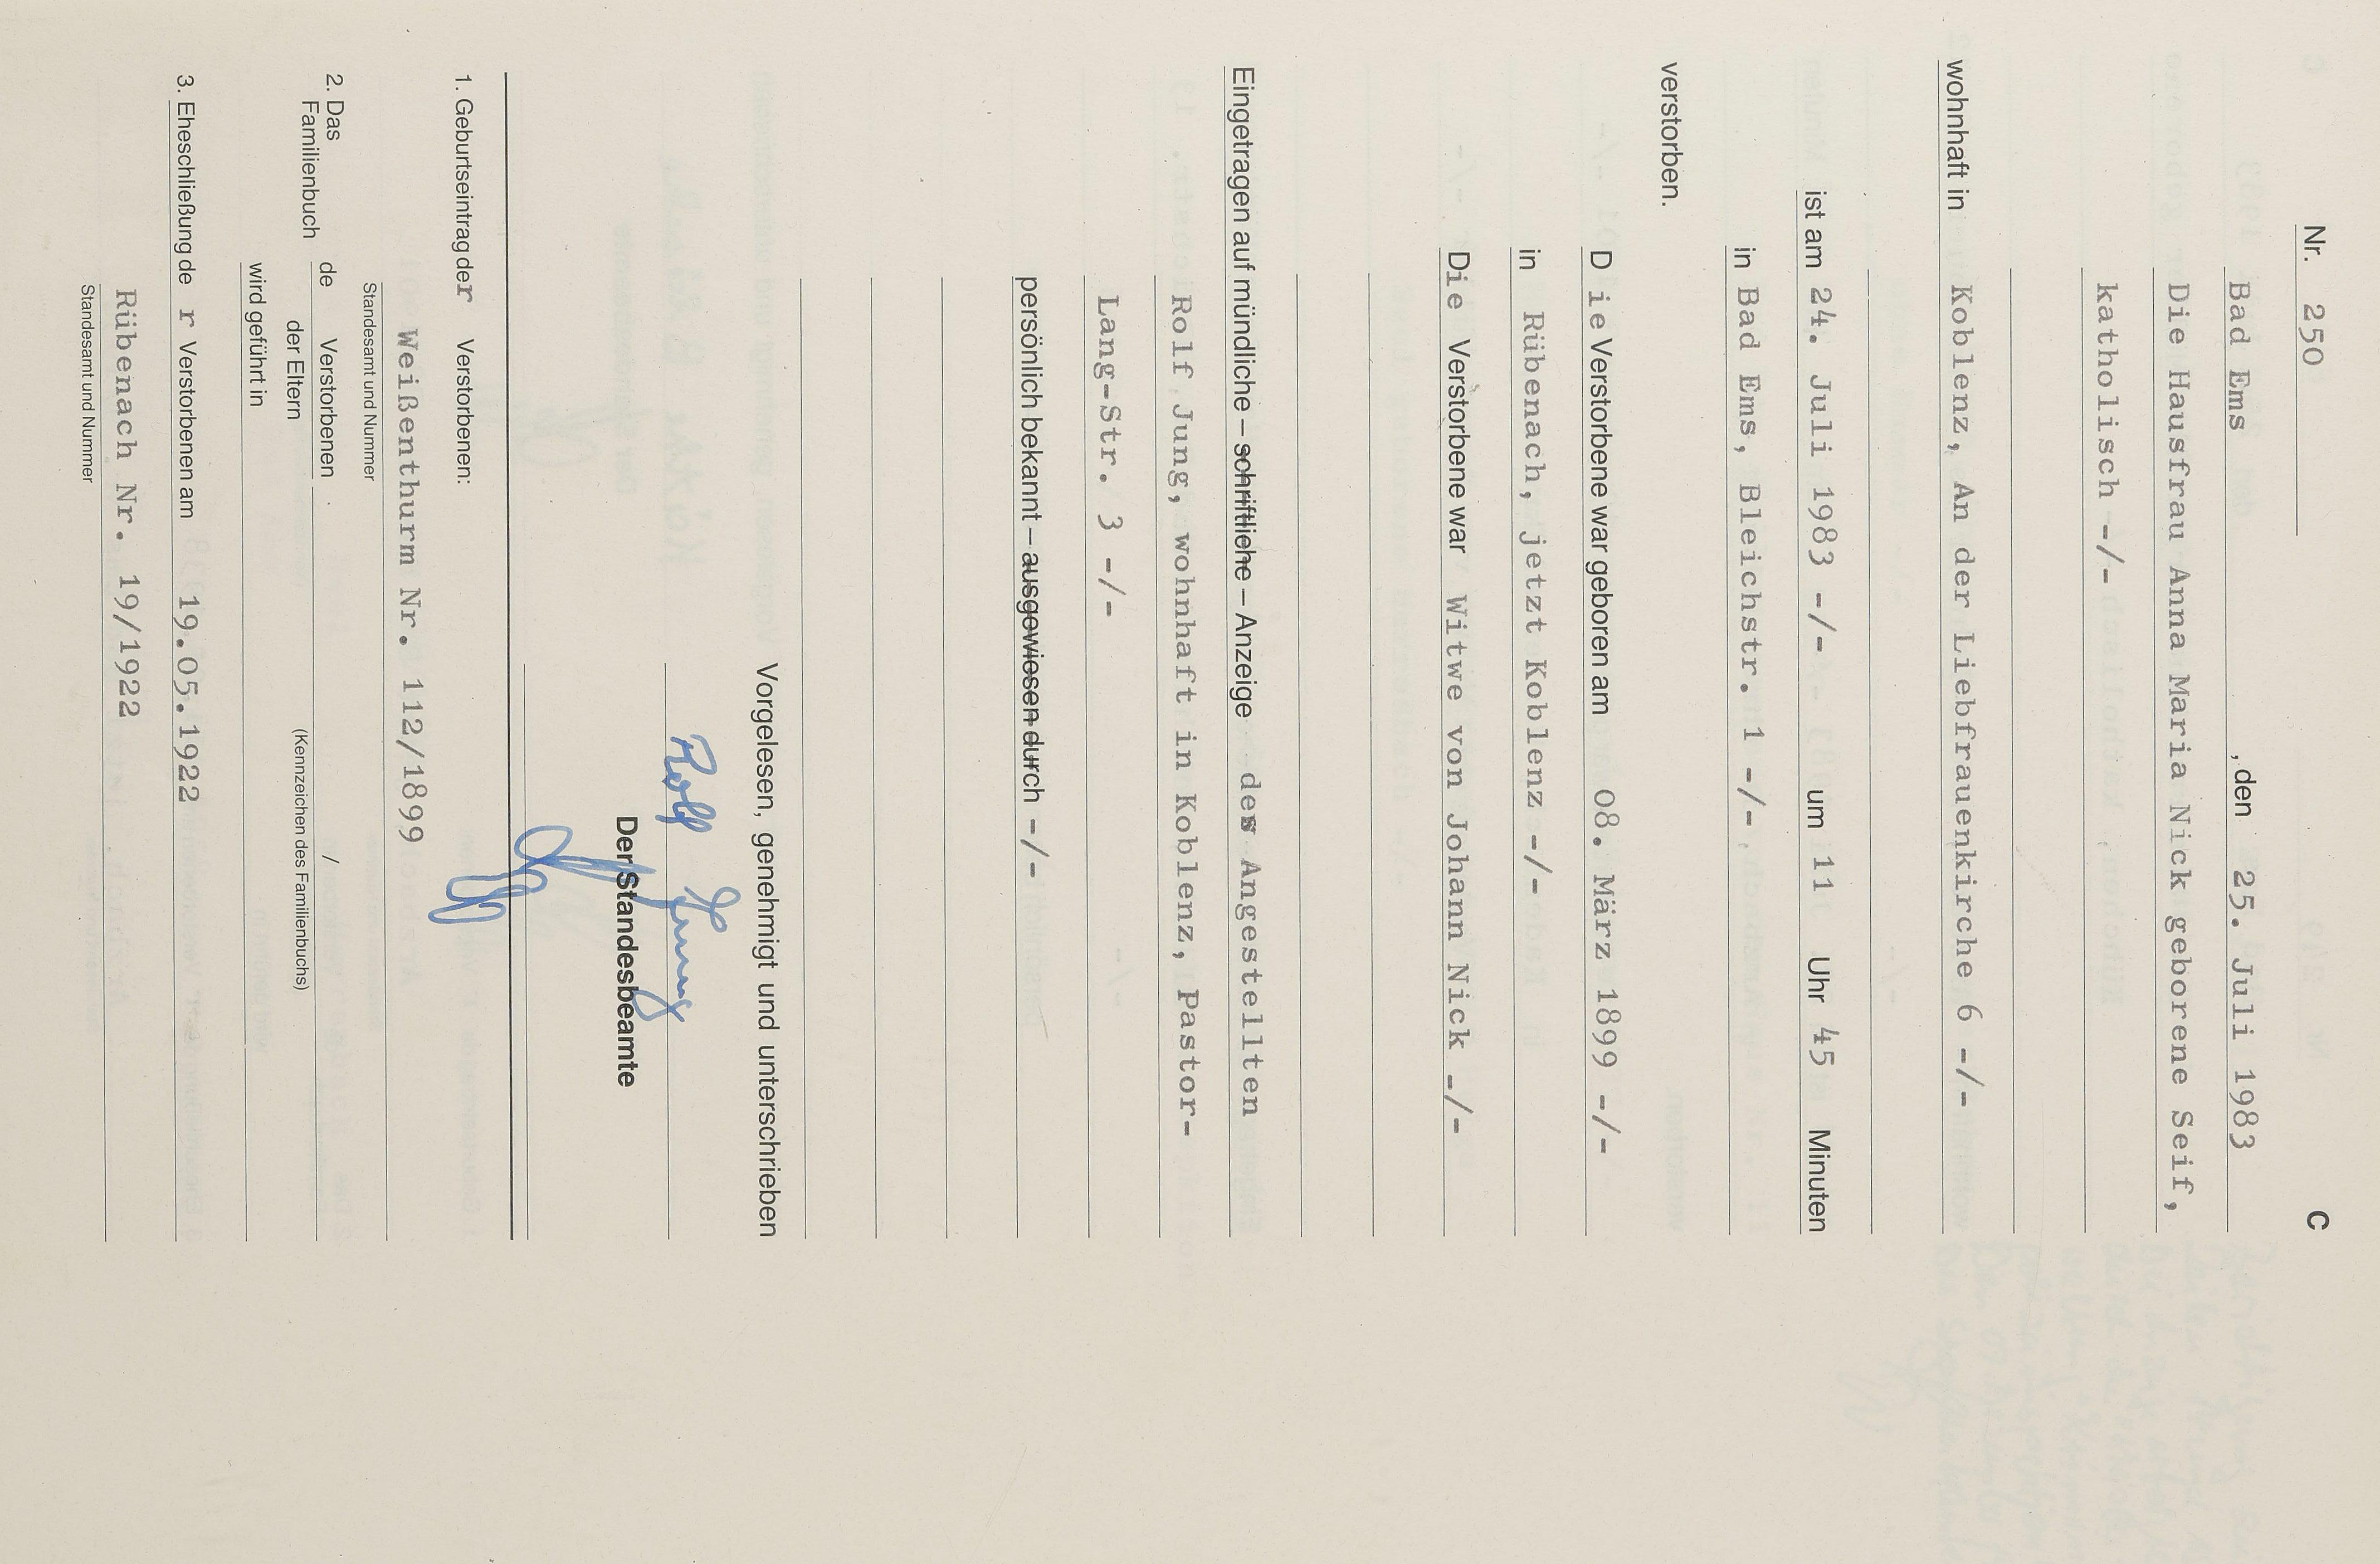 C
Nr. 250
Bad Ems , den 25. Juli 1983
Die Hausfrau Anna Maria Nick geborene Seif,
katholisch -/-
wohnhaft in Koblenz, An der Liebfrauenkirche 6 -/-
ist am 24. Juli 1983 -/- um 11 Uhr 45 Minuten
in Bad Ems, Bleichstr. 1 -/-
verstorben.
Die Verstorbene war geboren am 08. März 1899 -/-
in Rübenach, jetzt Koblenz -/-
Die Verstorbene war Witwe von Johann Nick -/-
Eingetragen auf mündliche – schriftliche – Anzeige des Angestellten
Rolf Jung, wohnhaft in Koblenz, Pastor-
Lang-Str. 3 -/-
persönlich bekannt – ausgewiesen durch -/-
Vorgelesen, genehmigt und unterschrieben
Rolf Jung
Der Standesbeamte
1. Geburtseintrag der Verstorbenen:
Weißenthurm Nr. 112/1899
Standesamt und Nummer
2. Das Familienbuch de Verstorbenen / der Eltern
(Kennzeichen des Familienbuchs)
wird geführt in
3. Eheschließung de r Verstorbenen am 19.05.1922
Rübenach Nr. 19/1922
Standesamt und Nummer